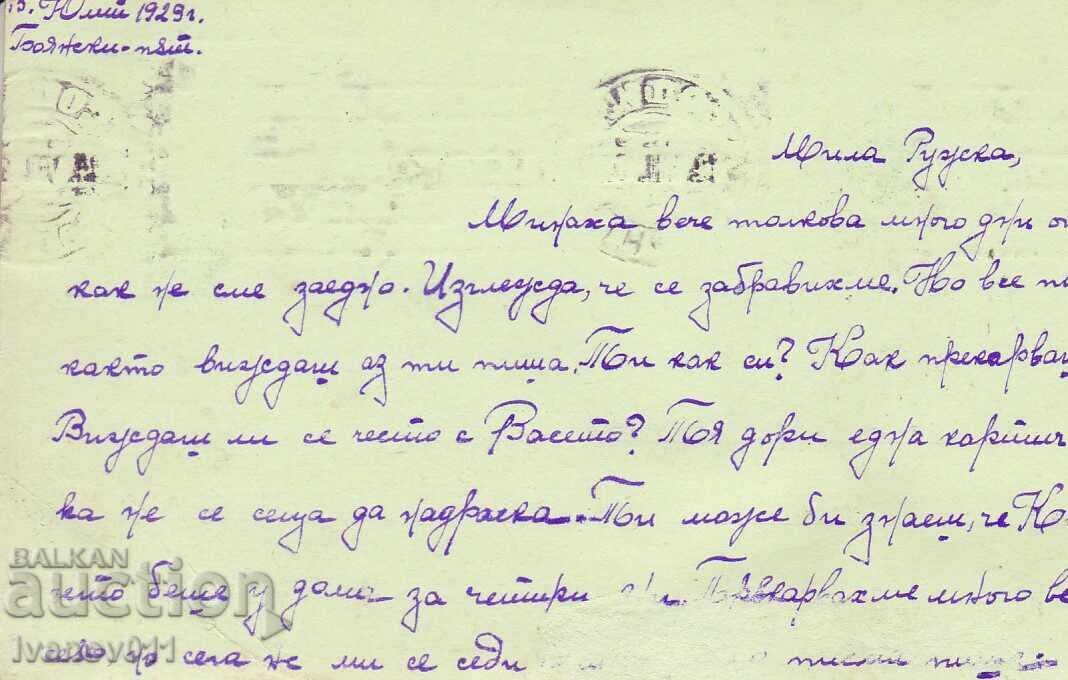 Юлий 1929г.
Бояжски-пят.
Мила Ружска,
Минаха вече толкова много джи от
как не сме заедно. Изглежда, че се забравихме. Но все
както виждаш аз ти пиша. Ти как си? Как прекарваш
Виждаш ли се често с Васето? Тя дори една картич
ка не се сеща да надраска. Ти може би знаеш, че К
чето беше у дома за четири Прекарвахме много ве
село но сега не ми се седи писма
BALKAN
auction
ivanov011